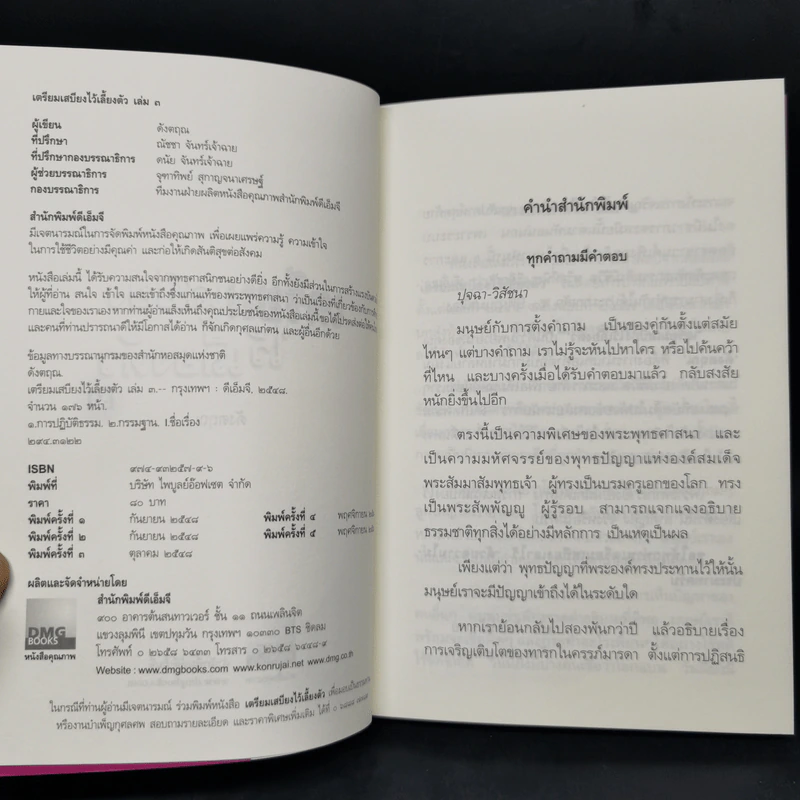 เตรียมเสบียงไว้เลี้ยงตัว เล่ม ๓
ผู้เขียน ดังตฤณ
ที่ปรึกษา ณัชชา จันทร์เจ้าฉาย
ที่ปรึกษากองบรรณาธิการ ดนัย จันทร์เจ้าฉาย
ผู้ช่วยบรรณาธิการ จุฑาทิพย์ สุกาญจนาเศรษฐ์
กองบรรณาธิการ ทีมงานฝ่ายผลิตหนังสือคุณภาพสำนักพิมพ์ดีเอ็มจี
สำนักพิมพ์ดีเอ็มจี
มีเจตนารมณ์ในการจัดพิมพ์หนังสือคุณภาพ เพื่อเผยแพร่ความรู้ ความเข้าใจ
ในการใช้ชีวิตอย่างมีคุณค่า และก่อให้เกิดสันติสุขต่อสังคม
หนังสือเล่มนี้ ได้รับความสนใจจากพุทธศาสนิกชนอย่างดียิ่ง อีกทั้งยังมีส่วนในการสร้าง
ให้ผู้ที่อ่าน สนใจ เข้าใจ และเข้าถึงซึ่งแก่นแท้ของพระพุทธศาสนา ว่าเป็นเรื่องที่เกี่ยวข้องกับ
กายและใจของเราเอง หากท่านผู้อ่านเล็งเห็นถึงคุณประโยชน์ของหนังสือเล่มนี้ขอได้โปรดส่งต่อให้
และคนที่ท่านปรารถนาดีให้มีโอกาสได้อ่าน ก็จักเกิดกุศลแก่ตน และผู้อื่นอีกด้วย
ข้อมูลทางบรรณานุกรมของสำนักหอสมุดแห่งชาติ
ดังตฤณ.
เตรียมเสบียงไว้เลี้ยงตัว เล่ม ๓.-- กรุงเทพฯ : ดีเอ็มจี, ๒๕๔๘.
จำนวน ๑๗๖ หน้า.
๑.การปฏิบัติธรรม. ๒.กรรมฐาน. I.ชื่อเรื่อง
๒๙๔.๓๑๒๒
ISBN ๙๗๔-๙๓๒๕๗-๙-๖
พิมพ์ที่ บริษัท ไพบูลย์อ๊อฟเซต จำกัด
ราคา ๘๐ บาท
พิมพ์ครั้งที่ ๑ กันยายน ๒๕๔๘ พิมพ์ครั้งที่ ๔ พฤศจิกายน
พิมพ์ครั้งที่ ๒ กันยายน ๒๕๔๘ พิมพ์ครั้งที่ ๕ พฤศจิกายน
พิมพ์ครั้งที่ ๓ ตุลาคม ๒๕๔๘
ผลิตและจัดจำหน่ายโดย
สำนักพิมพ์ดีเอ็มจี
๙๐๐ อาคารต้นสนทาวเวอร์ ชั้น ๑๑ ถนนเพลินจิต
แขวงลุมพินี เขตปทุมวัน กรุงเทพฯ ๑๐๓๓๐ BTS ชิดลม
โทรศัพท์ ๐ ๒๖๕๘ ๖๔๓๓ โทรสาร ๐ ๒๖๕๘ ๖๔๔๘-๙
Website : www.dmgbooks.com, www.konrujai.net www.dmg.co.th
DMG
BOOKS
หนังสือคุณภาพ
ในกรณีที่ท่านผู้อ่านมีเจตนารมณ์ ร่วมพิมพ์หนังสือ เตรียมเสบียงไว้เลี้ยงตัว
หรืองานบำเพ็ญกุศลศพ สอบถามรายละเอียด และราคาพิเศษเพิ่มเติม ได้ที่
คำนำสำนักพิมพ์
ทุกคำถามมีคำตอบ
ปุจฉา-วิสัชนา
มนุษย์กับการตั้งคำถาม เป็นของคู่กันตั้งแต่สมัย
ไหนๆ แต่บางคำถาม เราไม่รู้จะหันไปหาใคร หรือไปค้นคว้า
ที่ไหน และบางครั้งเมื่อได้รับคำตอบมาแล้ว กลับสงสัย
หนักยิ่งขึ้นไปอีก
ตรงนี้เป็นความพิเศษของพระพุทธศาสนา และ
เป็นความมหัศจรรย์ของพุทธปัญญาแห่งองค์สมเด็จ
พระสัมมาสัมพุทธเจ้า ผู้ทรงเป็นบรมครูเอกของโลก ทรง
เป็นพระสัพพัญญู ผู้รู้รอบ สามารถแจกแจงอธิบาย
ธรรมชาติทุกสิ่งได้อย่างมีหลักการ เป็นเหตุเป็นผล
เพียงแต่ว่า พุทธปัญญาที่พระองค์ทรงประทานไว้ให้นั้น
มนุษย์เราจะมีปัญญาเข้าถึงได้ในระดับใด
หากเราย้อนกลับไปสองพันกว่าปี แล้วอธิบายเรื่อง
การเจริญเติบโตของทารกในครรภ์มารดา ตั้งแต่การปฏิสนธิ